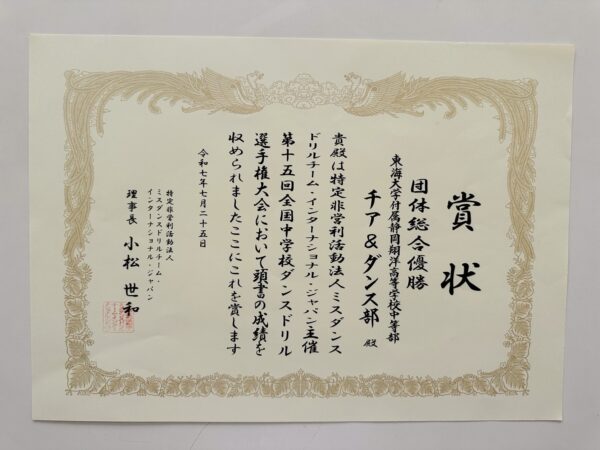 賞状
団体総合優勝
東海大学付属静岡翔洋高等学校中等部
チア&ダンス部 殿
貴殿は特定非営利活動法人ミスダンス
ドリルチーム・インターナショナル・ジャパン主催
第十五回全国中学校ダンスドリル
選手権大会において頭書の成績を
収められましたここにこれを賞します
令和七年七月二十五日
特定非営利活動法人
ミスダンスドリルチーム・
インターナショナル・ジャパン
理事長 小松世和